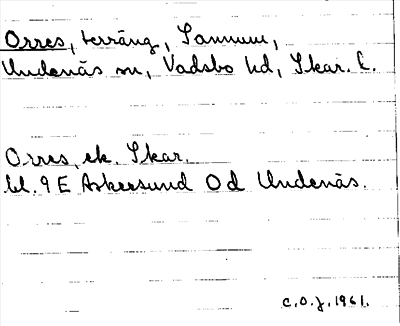 Orres, terräng, Sannum,
Undenäs sn, Vadsbo hd, Skar. l.
Orres, ek. Skar.
bl. 9 E Askersund O d Undenäs.
C.O.J. 1961.